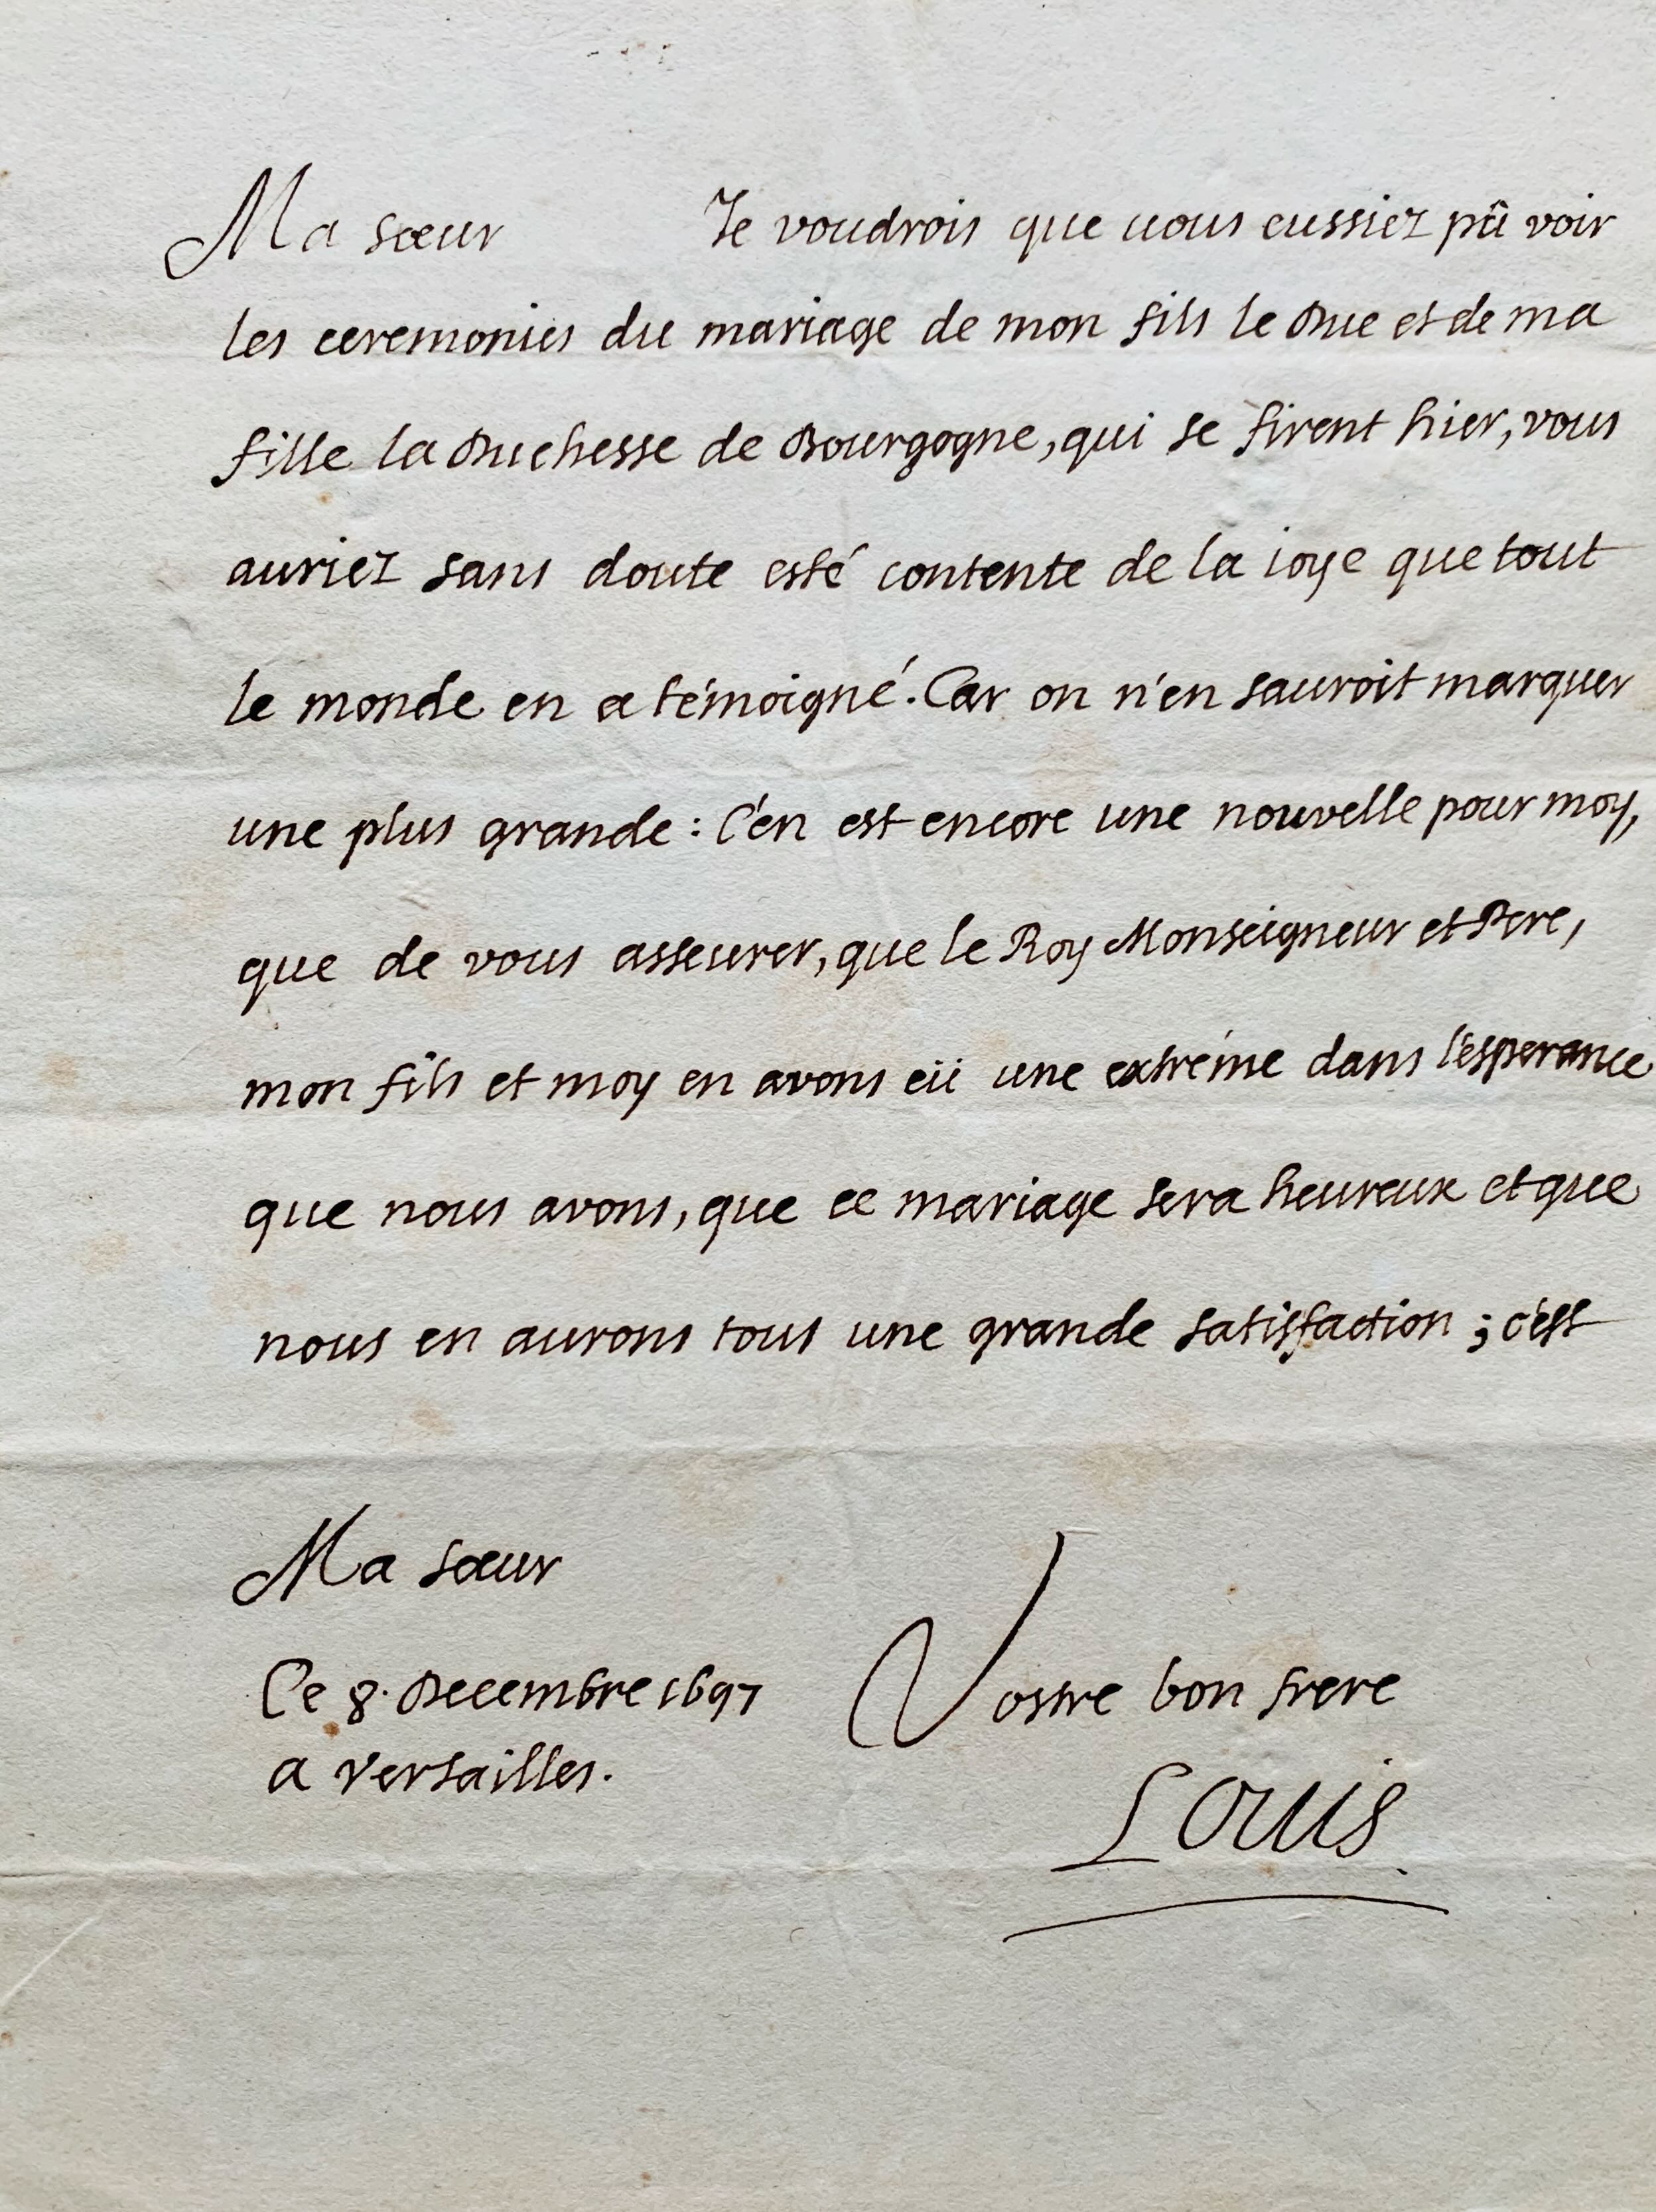 Ma sœur Je voudrois que uous eussiez pû voir
les ceremonies du mariage de mon fils le Duc et de ma
fille la Duchesse de Bourgogne, qui se firent hier, vous
auriez sans doute esté contente de la ioye que tout
le monde en a témoigné. Car on n'en sauroit marquer
une plus grande : C'en est encore une nouvelle pour moy,
que de vous asseurer, que le Roy Monseigneur et Pere,
mon fils et moy en avons eü une extréme dans l'esperance
que nous avons, que ce mariage sera heureux et que
nous en aurons tous une grande satisfaction ; c'est
Ma sœur
Ce 8. Decembre 1697 Vostre bon frere
a Versailles.
Louis.